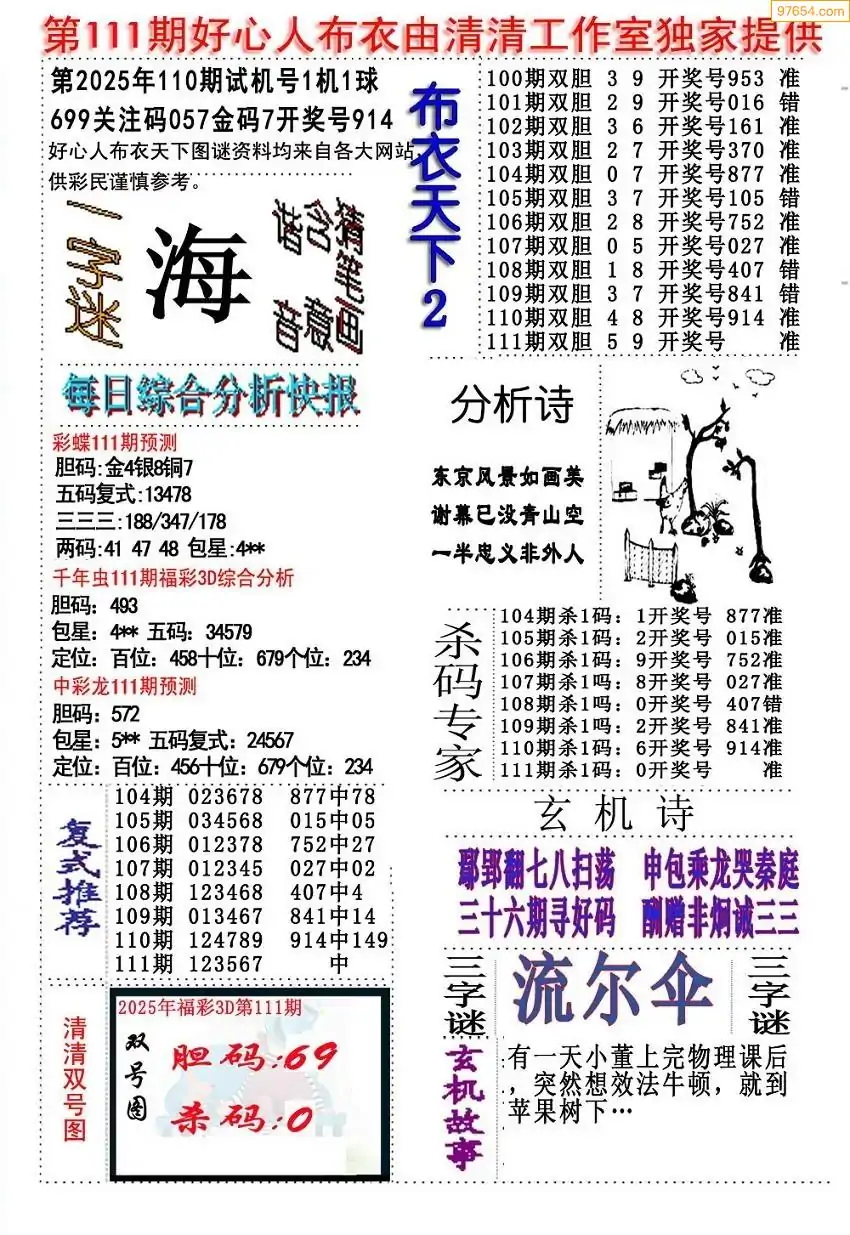 97654.com
第111期好心人布衣由清清工作室独家提供
第2025年110期试机号1机1球
699关注码057金码7开奖号914
好心人布衣天下图谜资料均来自各大网站,
供彩民谨慎参考。
一字迷
海
谐音
含意
猜笔画
布衣天下2
100期双胆 3 9 开奖号953 准
101期双胆 2 9 开奖号016 错
102期双胆 3 6 开奖号161 准
103期双胆 2 7 开奖号370 准
104期双胆 0 7 开奖号877 准
105期双胆 3 7 开奖号105 错
106期双胆 2 8 开奖号752 准
107期双胆 0 5 开奖号027 准
108期双胆 1 8 开奖号407 错
109期双胆 3 7 开奖号841 错
110期双胆 4 8 开奖号914 准
111期双胆 5 9 开奖号 准
每日综合分析快报
彩蝶111期预测
胆码:金4银8铜7
五码复式:13478
三三三:188/347/178
两码:41 47 48 包星:4**
千年虫111期福彩3D综合分析
胆码: 493
包星: 4** 五码: 34579
定位: 百位: 458十位: 679个位: 234
中彩龙111期预测
胆码: 572
包星: 5** 五码复式: 24567
定位: 百位: 456十位: 679个位: 234
分析诗
东京风景如画美
谢幕已没青山空
一半忠义非外人
杀码专家
104期杀1码: 1开奖号 877准
105期杀1码: 2开奖号 015准
106期杀1码: 9开奖号 752准
107期杀1吗: 8开奖号 027准
108期杀1吗: 0开奖号 407错
109期杀1吗: 2开奖号 841准
110期杀1码: 6开奖号 914准
111期杀1码: 0开奖号 准
复式推荐
104期 023678 877中78
105期 034568 015中05
106期 012378 752中27
107期 012345 027中02
108期 123468 407中4
109期 013467 841中14
110期 124789 914中149
111期 123567 中
玄机诗
鄢郢翻七八扫荡 申包乘龙哭秦庭
三十六期寻好码 酬赠非炯诚三三
三字谜
流尔伞
三字谜
清清双号图
2025年福彩3D第111期
双号图
胆码:69
杀码:0
玄机故事
有一天小董上完物理课后
，突然想效法牛顿，就到
苹果树下…